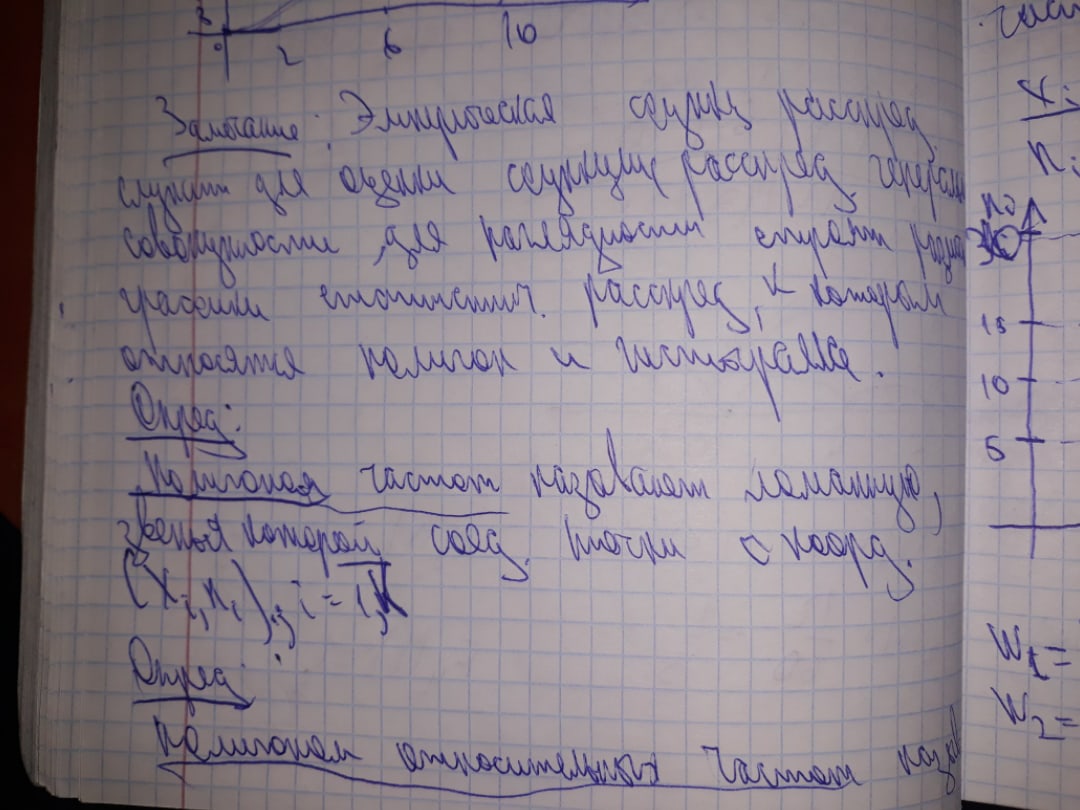 0 2 6 10
Замечание: Эмпирическая функц распред.
служит для оценки функции распред. генеральн
совокупности, для наглядности строят
графики статистич. распред, к которым
относятся полигон и гистограмма.
Опред:
Полигоном частот называют ломанную,
звенья которой соед. точки с коорд.
(xi, ni), i = 1,k
Опред:
Полигоном относительных частот назыв
част
xi
ni
ni
15
10
5
W1 =
W2 =